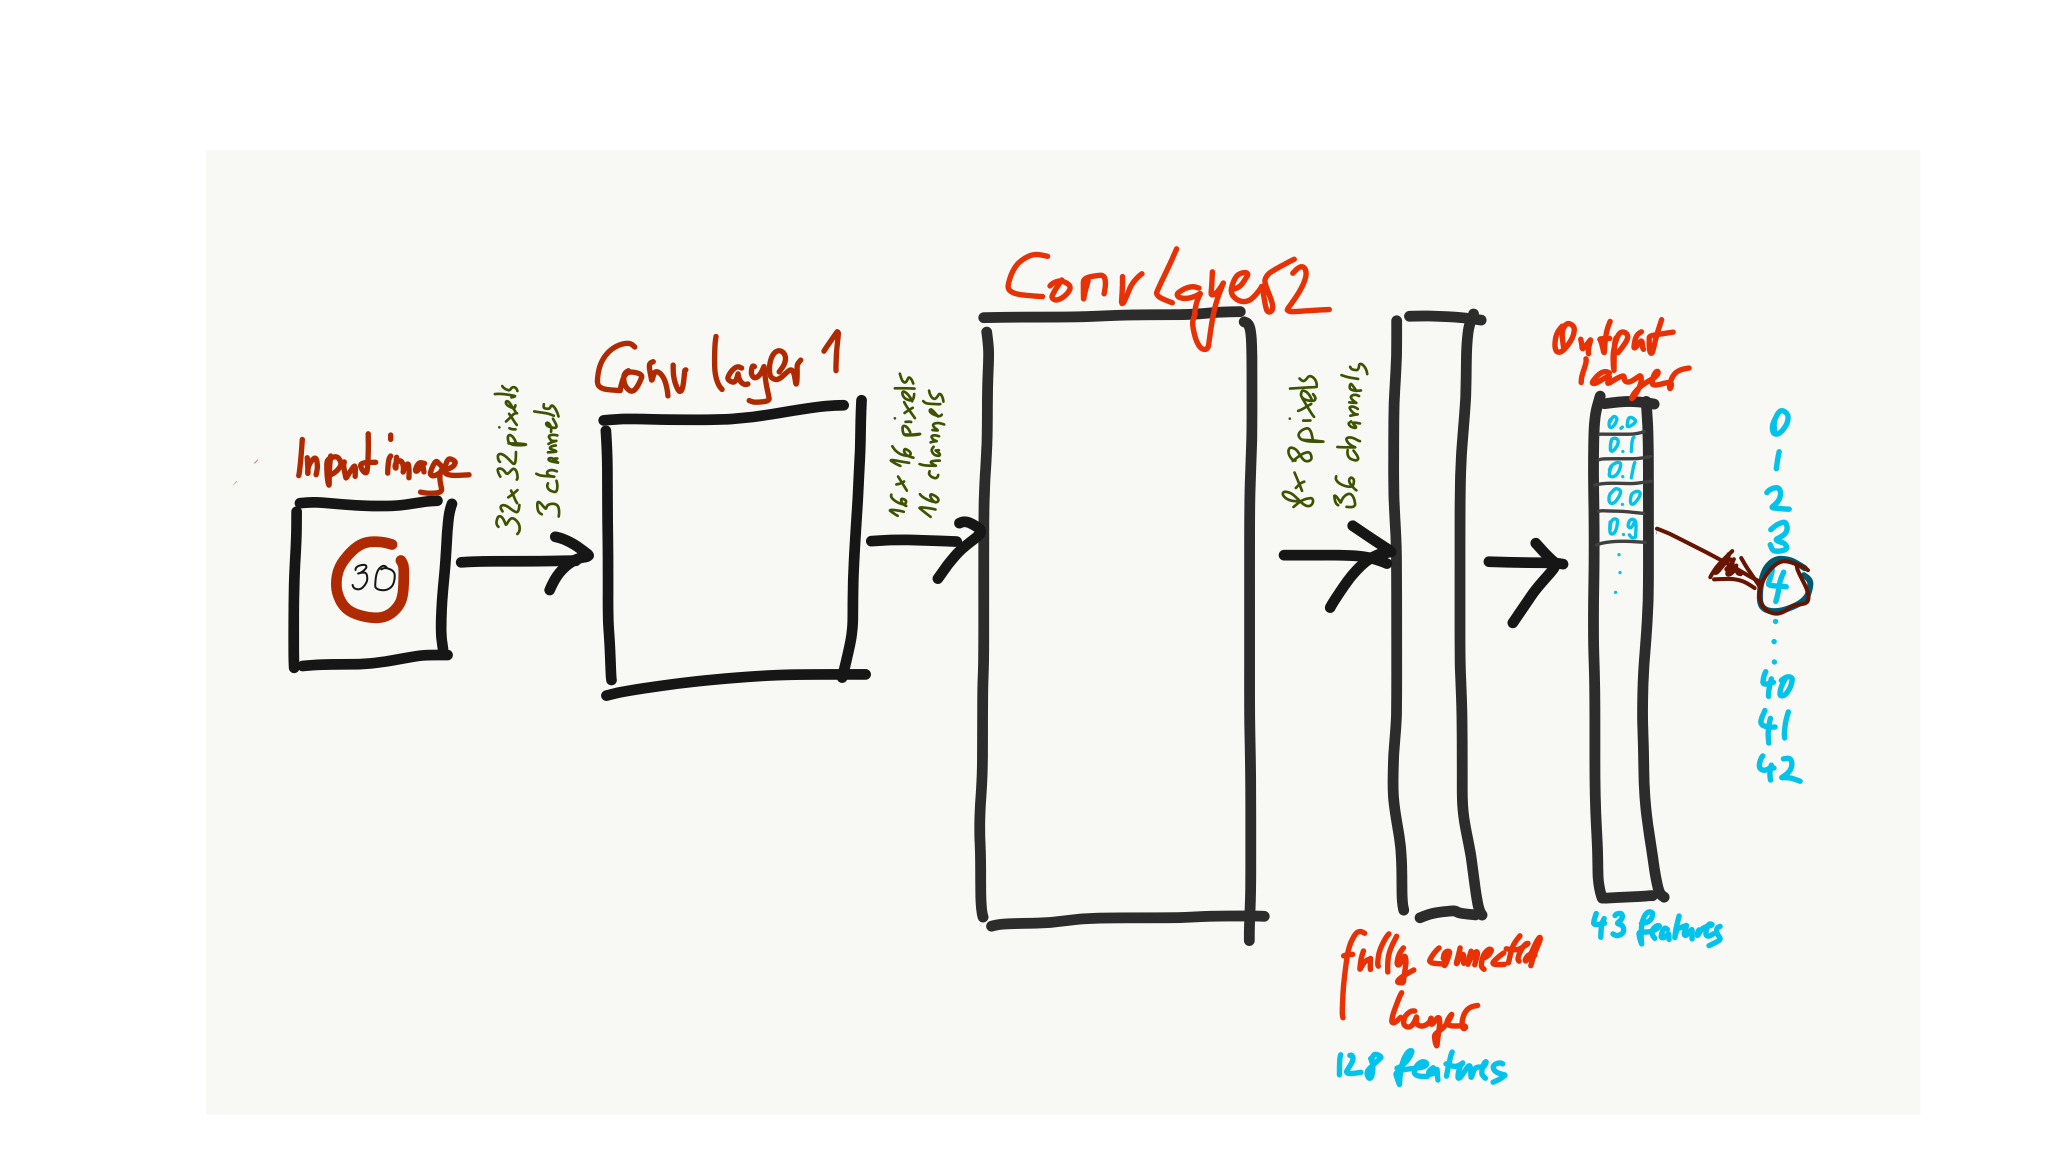 Input image
30
32x32pixels
3 channels
Conv layer 1
16 x 16 pixels
16 channels
Conv Layer 2
8 x 8 pixels
36 channels
fully connected
layer
128 features
Output
layer
0.0
0.1
0.1
0.0
0.9
43 features
0
1
2
3
4
40
41
42